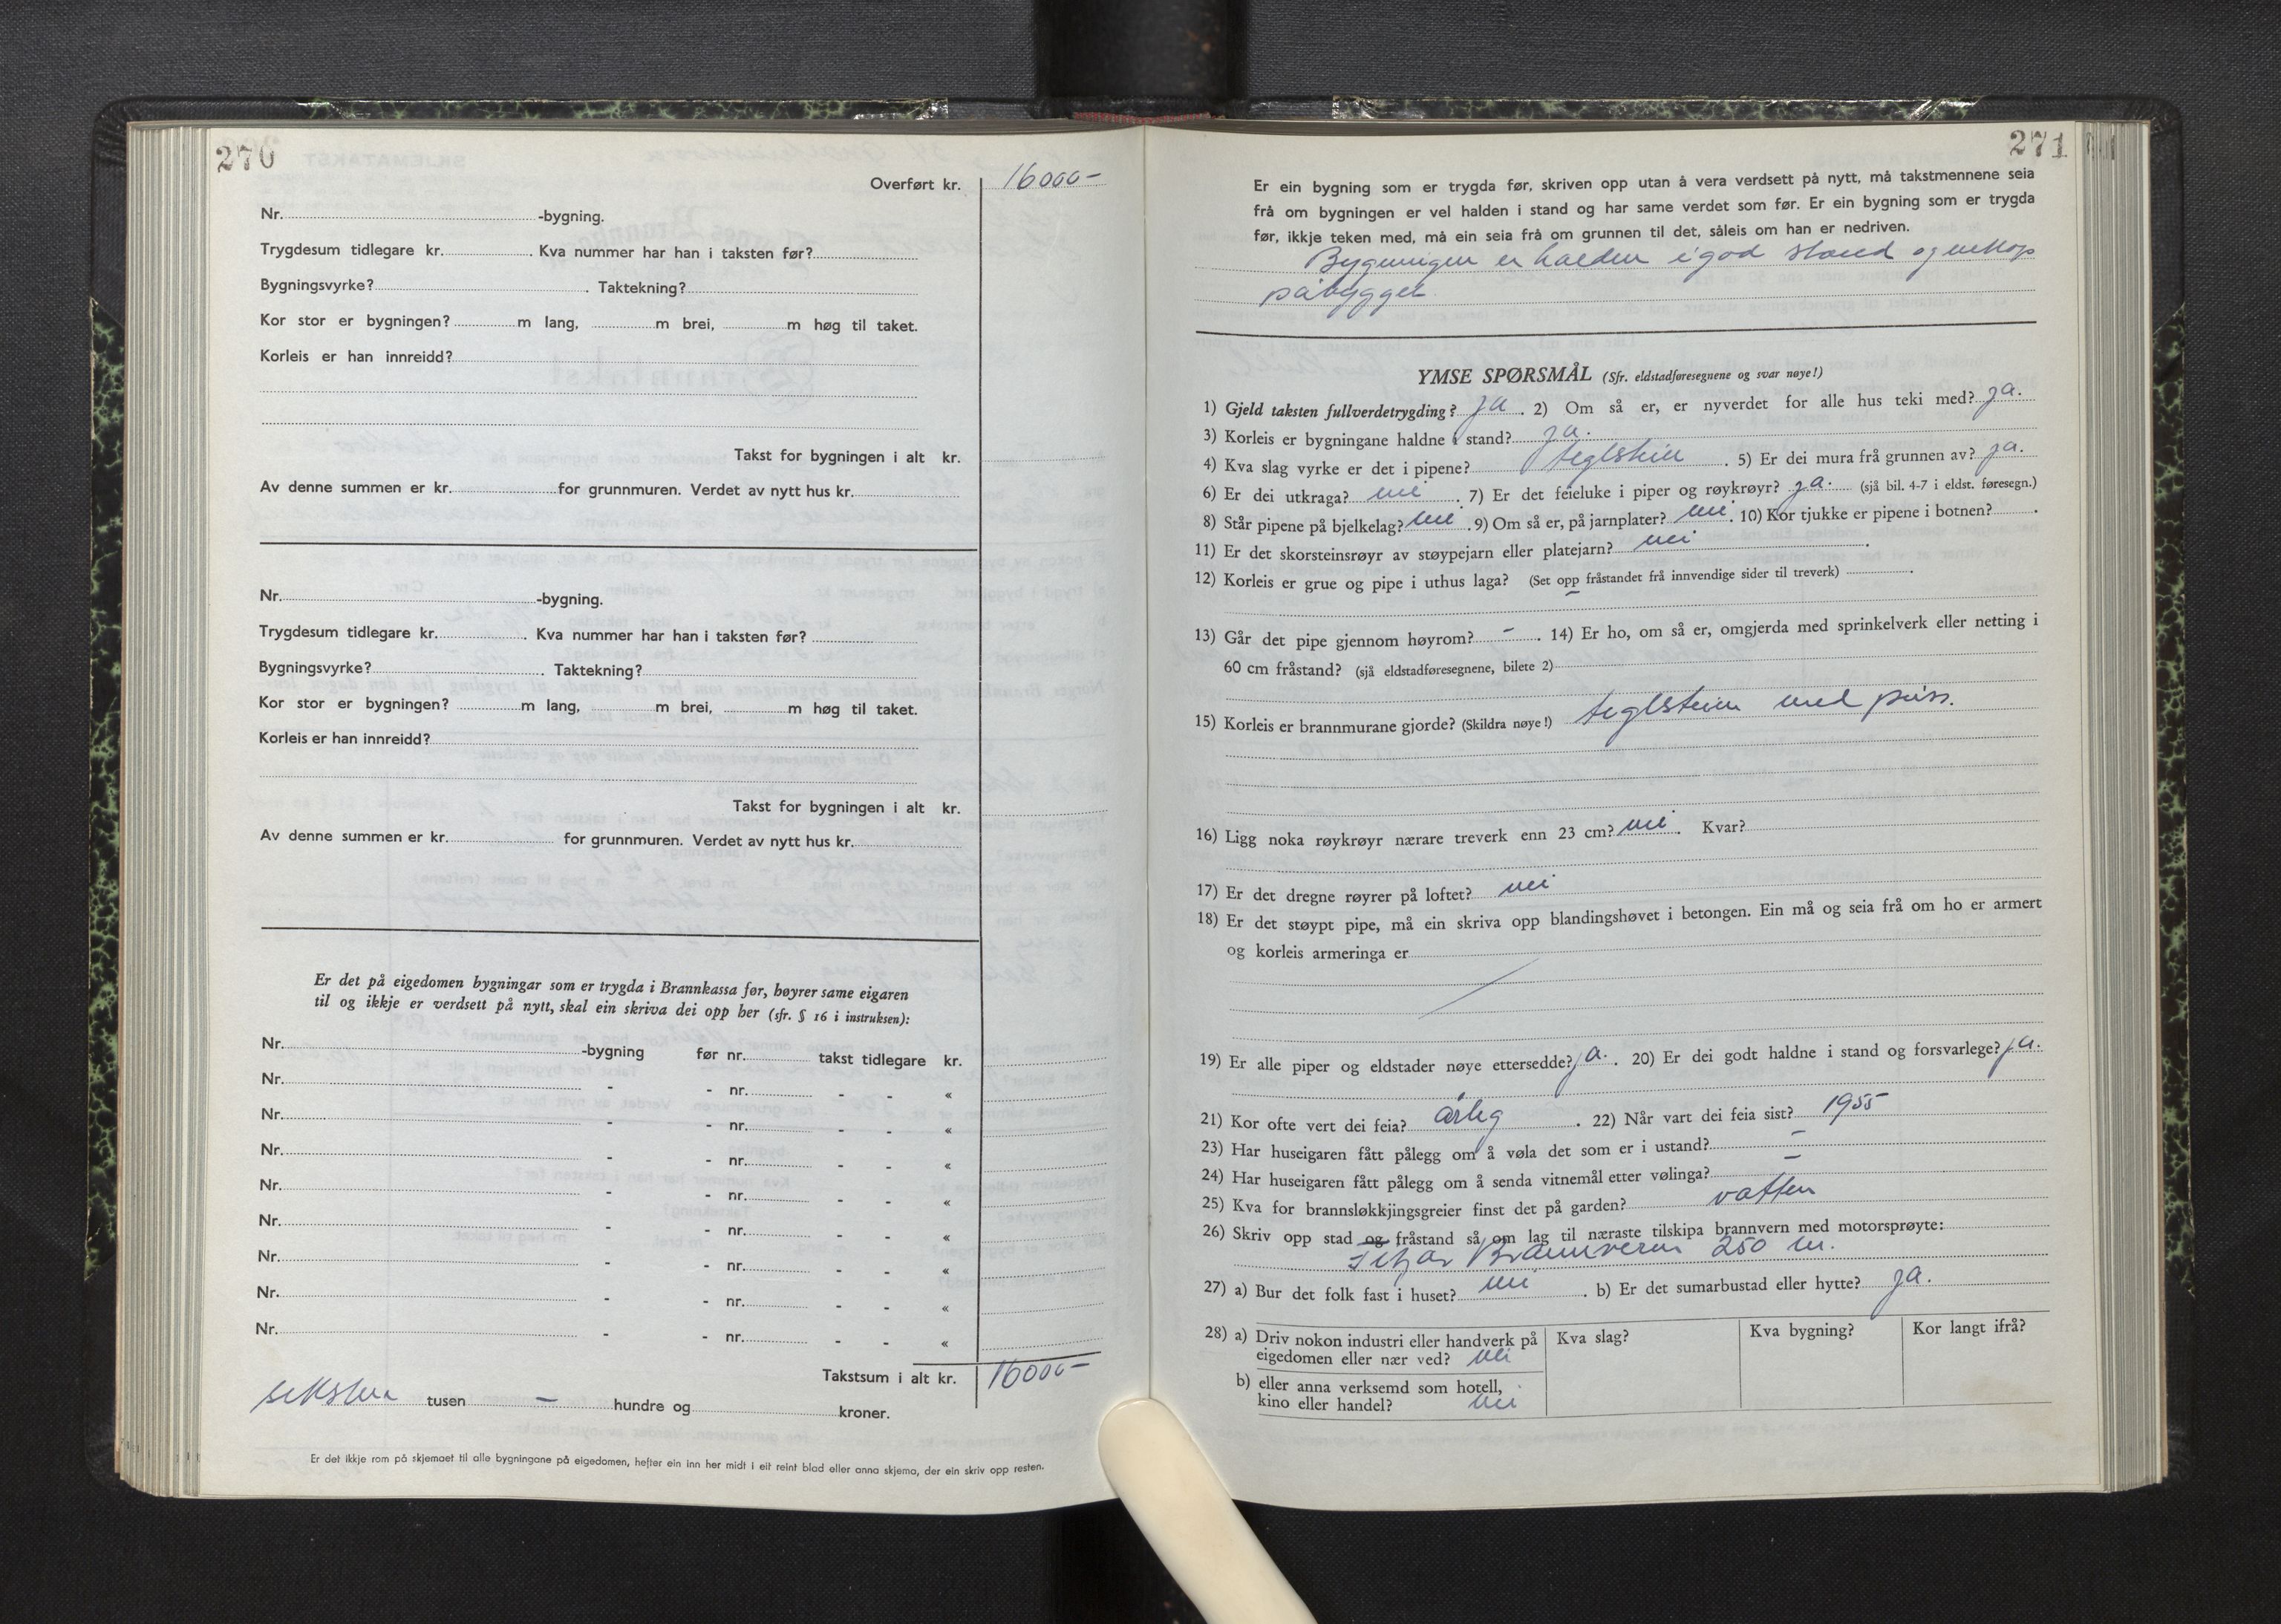 270
Overført kr. 16000-
Nr. -bygning.
Trygdesum tidlegare kr. . Kva nummer har han i taksten før?
Bygningsvyrke? . Taktekning?
Kor stor er bygningen? m lang, m brei, m høg til taket.
Korleis er han innreidd?
Takst for bygningen i alt kr.
Av denne summen er kr. for grunnmuren. Verdet av nytt hus kr.
Nr. -bygning.
Trygdesum tidlegare kr. . Kva nummer har han i taksten før?
Bygningsvyrke? . Taktekning?
Kor stor er bygningen? m lang, m brei, m høg til taket.
Korleis er han innreidd?
Takst for bygningen i alt kr.
Av denne summen er kr. for grunnmuren. Verdet av nytt hus kr.
Er det på eigedomen bygningar som er trygda i Brannkassa før, høyrer same eigaren
til og ikkje er verdsett på nytt, skal ein skriva dei opp her (sfr. § 16 i instruksen):
Nr. -bygning før nr. takst tidlegare kr.
Nr. - - nr. - - «
Nr. - - nr. - - «
Nr. - - nr. - - «
Nr. - - nr. - - «
Nr. - - nr. - - «
Nr. - - nr. - - «
Nr. - - nr. - - «
Nr. - - nr. - - «
Takstsum i alt kr. 16000-
seksten tusen - hundre og kroner.
Er det ikkje rom på skjemaet til alle bygningane på eigedomen, hefter ein inn her midt i eit reint blad eller anna skjema, der ein skriv opp resten.
271
Er ein bygning som er trygda før, skriven opp utan å vera verdsett på nytt, må takstmennene seia
frå om bygningen er vel halden i stand og har same verdet som før. Er ein bygning som er trygda
før, ikkje teken med, må ein seia frå om grunnen til det, såleis om han er nedriven.
Bygningen er halden i god stand og nettop
påbygget
YMSE SPØRSMÅL (Sfr. eldstadføresegnene og svar nøye!)
1) Gjeld taksten fullverdetrygding? ja . 2) Om så er, er nyverdet for alle hus teki med? ja.
3) Korleis er bygningane haldne i stand? ja.
4) Kva slag vyrke er det i pipene? teglstein . 5) Er dei mura frå grunnen av? ja.
6) Er dei utkraga? nei . 7) Er det feieluke i piper og røykrøyr? ja. (sjå bil. 4-7 i eldst. føresegn.)
8) Står pipene på bjelkelag? nei . 9) Om så er, på jarnplater? nei . 10) Kor tjukke er pipene i botnen? .
11) Er det skorsteinsrøyr av støypejarn eller platejarn? nei .
12) Korleis er grue og pipe i uthus laga? (Set opp fråstandet frå innvendige sider til treverk) .
-
13) Går det pipe gjennom høyrom? - . 14) Er ho, om så er, omgjerda med sprinkelverk eller netting i
60 cm fråstand? (sjå eldstadføresegnene, bilete 2)
15) Korleis er brannmurane gjorde? (Skildra nøye!) teglstein med puss.
16) Ligg noka røykrøyr nærare treverk enn 23 cm? nei . Kvar?
17) Er det dregne røyrer på loftet? nei
18) Er det støypt pipe, må ein skriva opp blandingshøvet i betongen. Ein må og seia frå om ho er armert
og korleis armeringa er
19) Er alle piper og eldstader nøye ettersedde? ja. . 20) Er dei godt haldne i stand og forsvarlege? ja.
21) Kor ofte vert dei feia? årleg . 22) Når vart dei feia sist? 1955
23) Har huseigaren fått pålegg om å vøla det som er i ustand? -
24) Har huseigaren fått pålegg om å senda vitnemål etter vølinga? -
25) Kva for brannsløkkjingsgreier finst det på garden? vatten
26) Skriv opp stad og fråstand så om lag til næraste tilskipa brannvern med motorsprøyte:
Brannvern 250 m.
27) a) Bur det folk fast i huset? nei . b) Er det sumarbustad eller hytte? ja.
28) a) Driv nokon industri eller handverk på
eigedomen eller nær ved? nei
Kva slag? Kva bygning? Kor langt ifrå?
b) eller anna verksemd som hotell,
kino eller handel? nei